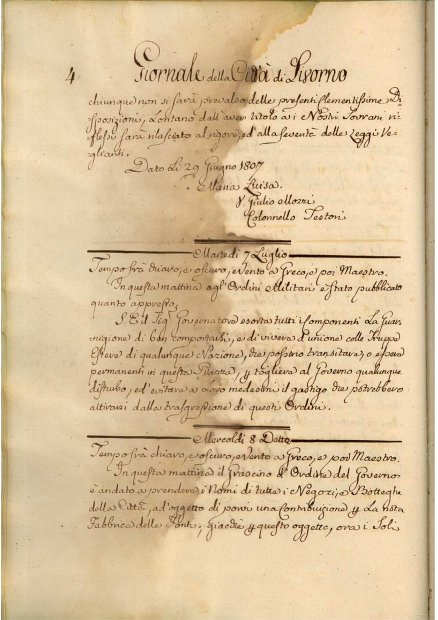 4 Giornale della Città di Livorno
chiunque non si sarà prevalso delle presenti Clementissime Di-
sposizioni, lontano dall'aver titolo a i Nostri Sovrani ri-
flessi sarà rilasciato al rigore, ed alla severità delle Leggi Ve-
glianti.
Dato li 29 Giugno 1807
Maria Luisa.
V. Giulio Mozzi
Colonnello Testori
Martedì 7 Luglio
Tempo frà chiaro, e oscuro, e vento a Greco, e poi Maestro.
In questa mattina agl'Ordini Militari è stato pubblicato
quanto appresso,
S.E. il Sig.r Governatore esorta tutti i Componenti la Guar-
nigione di ben comportarsi, e di vivere d'unione colle Truppe
Estere di qualunque Nazione, che possino transitare, o essere
permanenti in questa Piazza, p togliere al Governo qualunque
disturbo, ed evitare a loro medesimi il gastigo che potrebbero
attirarsi dalla trasgressione di questi Ordini.
Mercoldì 8 Detto
Tempo frà chiaro, e oscuro, e vento a Greco, e poi Maestro.
In questa mattina il Grascino d'Ordine del Governo
è andato a prendere i Nomi di tutti i Negozj, e Botteghe
della Città, ad oggetto di porvi una Contribuzione p La nota
Fabbrica delle Fonti, giacchè p questo oggetto, ora i Soli